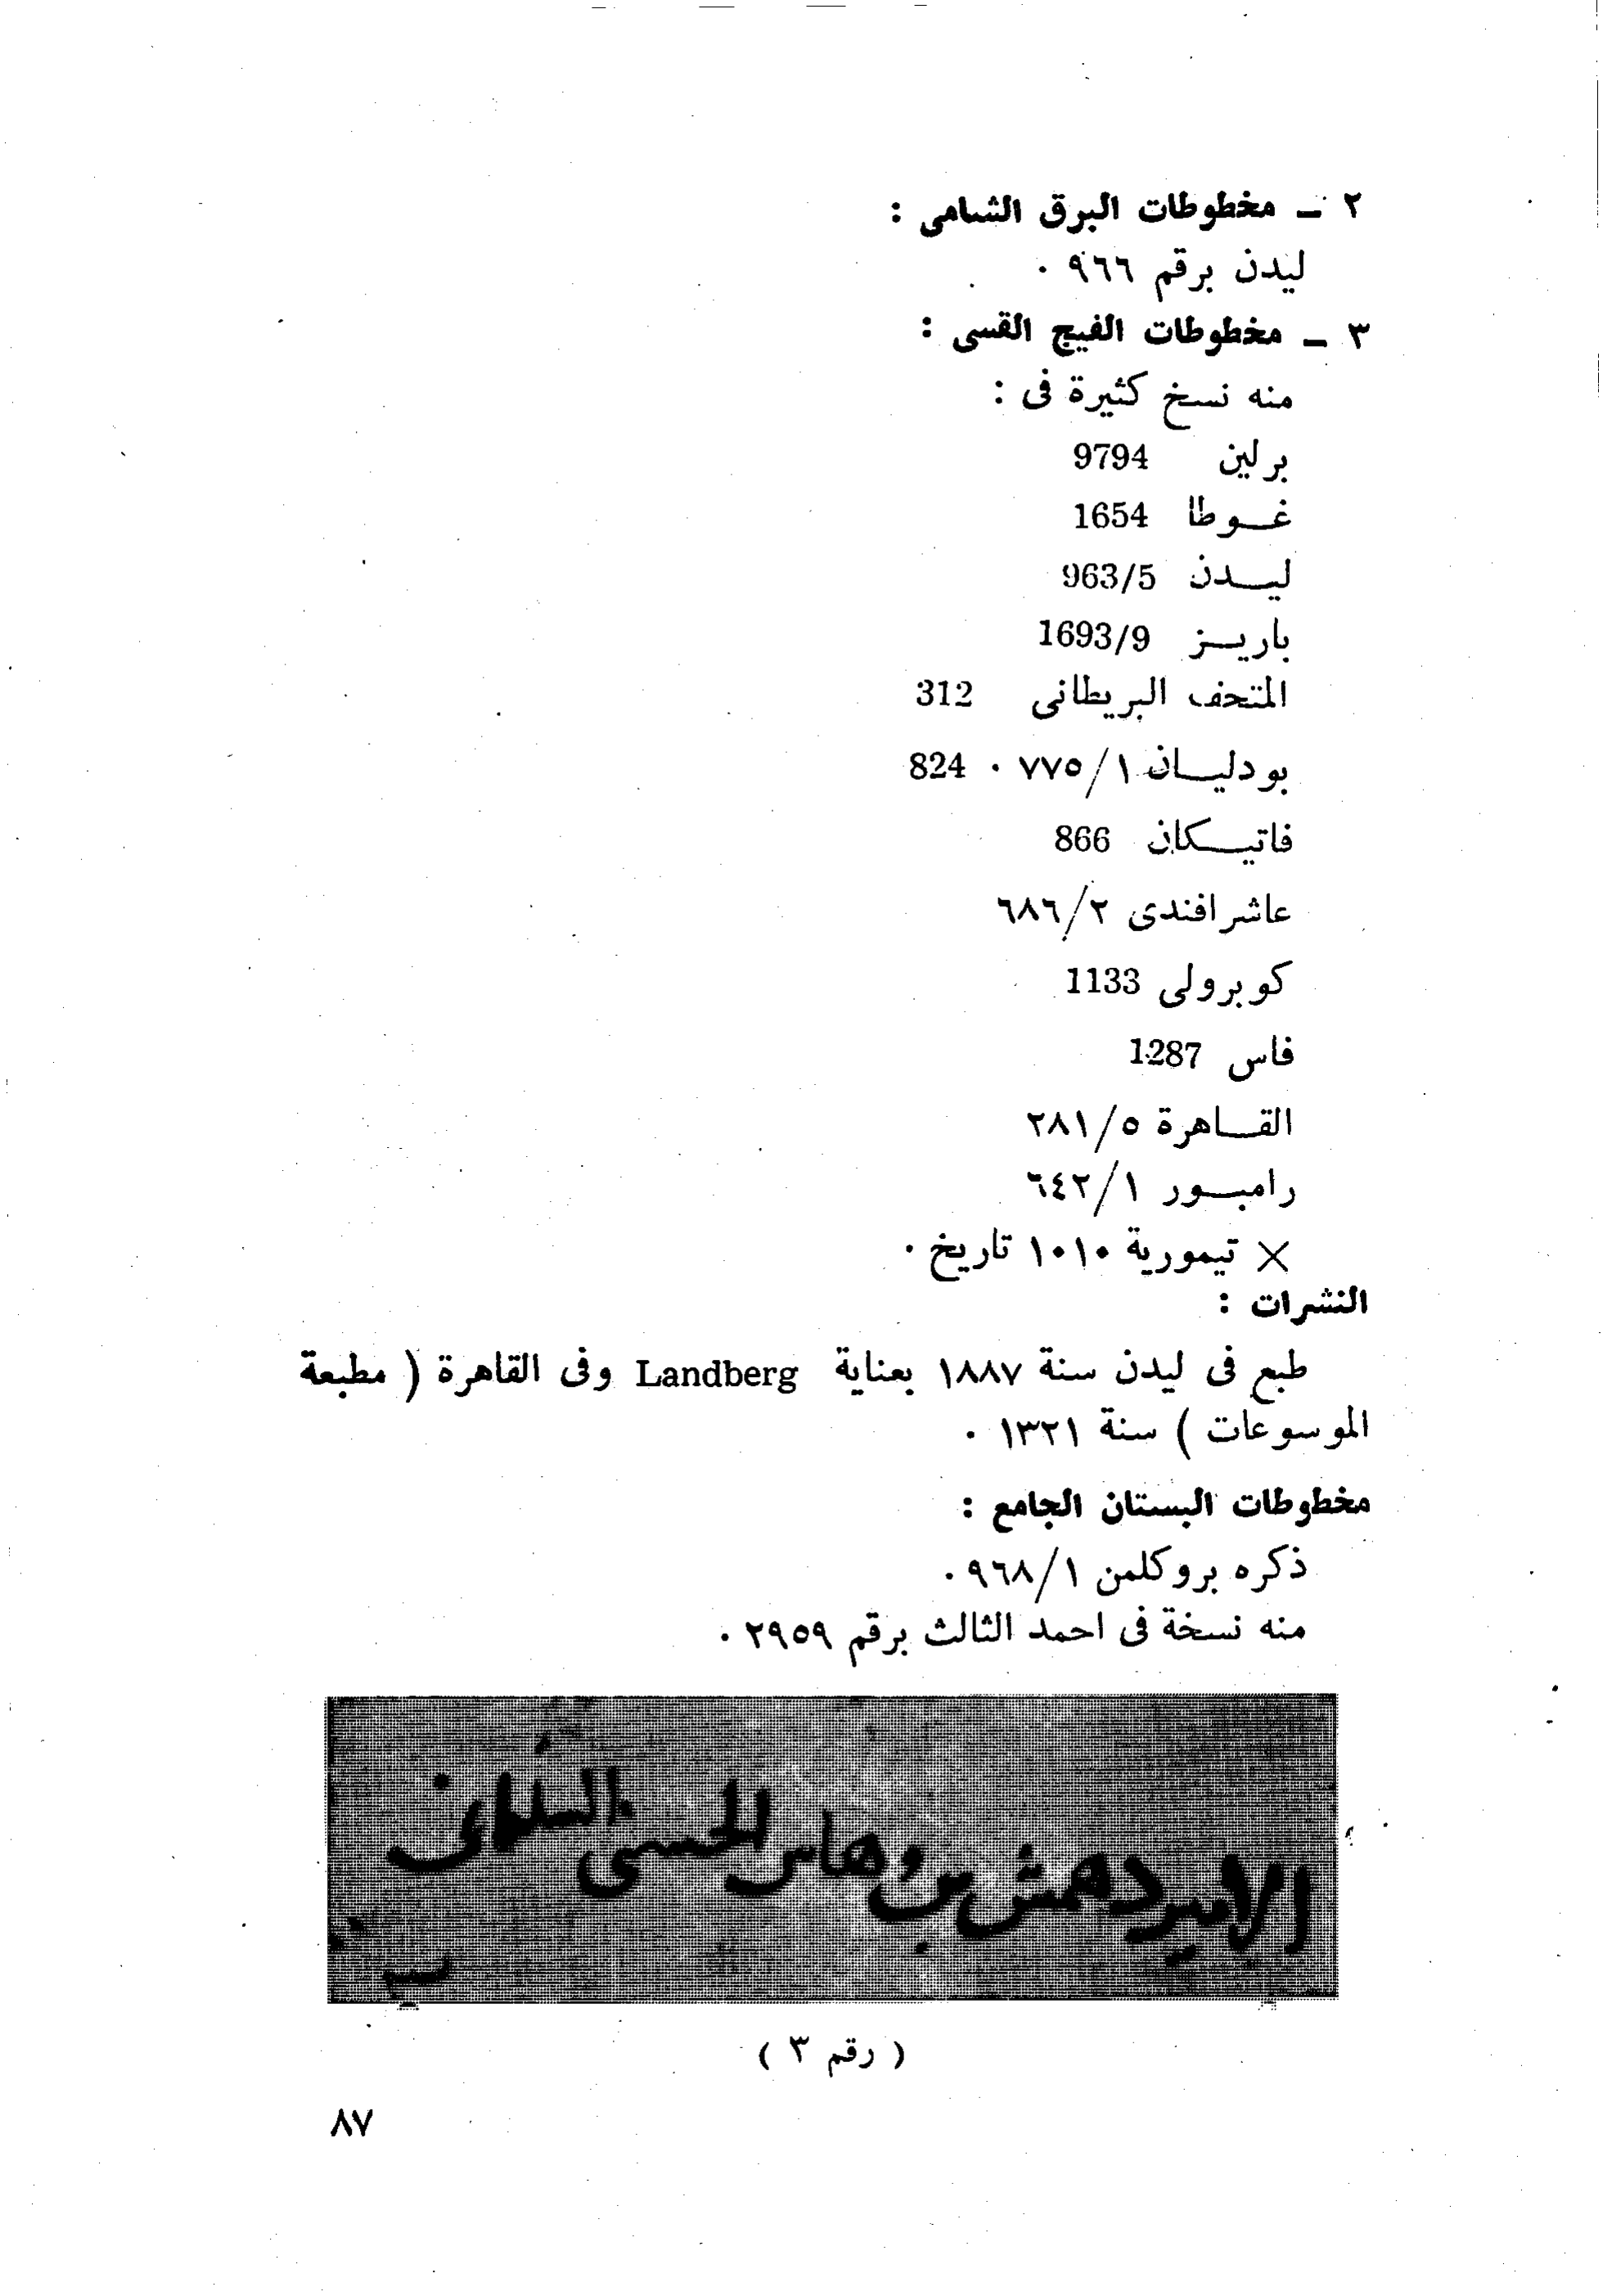 ٢ - مخطوطات البرق الشامى :
ليدن برقم ٩٦٦ .
٣ - مخطوطات الفيج القسى :
منه نسخ كثيرة فى :
برلين 9794
غـوطا 1654
ليـدن 963/5
باريـز 1693/9
المتحف البريطانى 312
بودليـان ١/٧٧٥ . 824
فاتيـكان 866
عاشر افندى ٢/٦٨٦
كوبرولى 1133
فاس 1287
القـاهرة ٥/٢٨١
رامبـور ١/٦٤٢
× تيمورية ١٠١٠ تاريخ .
النشرات :
طبع فى ليدن سنة ١٨٨٧ بعناية Landberg وفى القاهرة ( مطبعة
الموسوعات ) سنة ١٣٢١ .
مخطوطات البستان الجامع :
ذكره بروكلمن ١/٩٦٨ .
منه نسخة فى احمد الثالث برقم ٢٩٥٩ .
الامير دهمش بن وهاس الحسنى السليمانى
( رقم ٣ )
٨٧